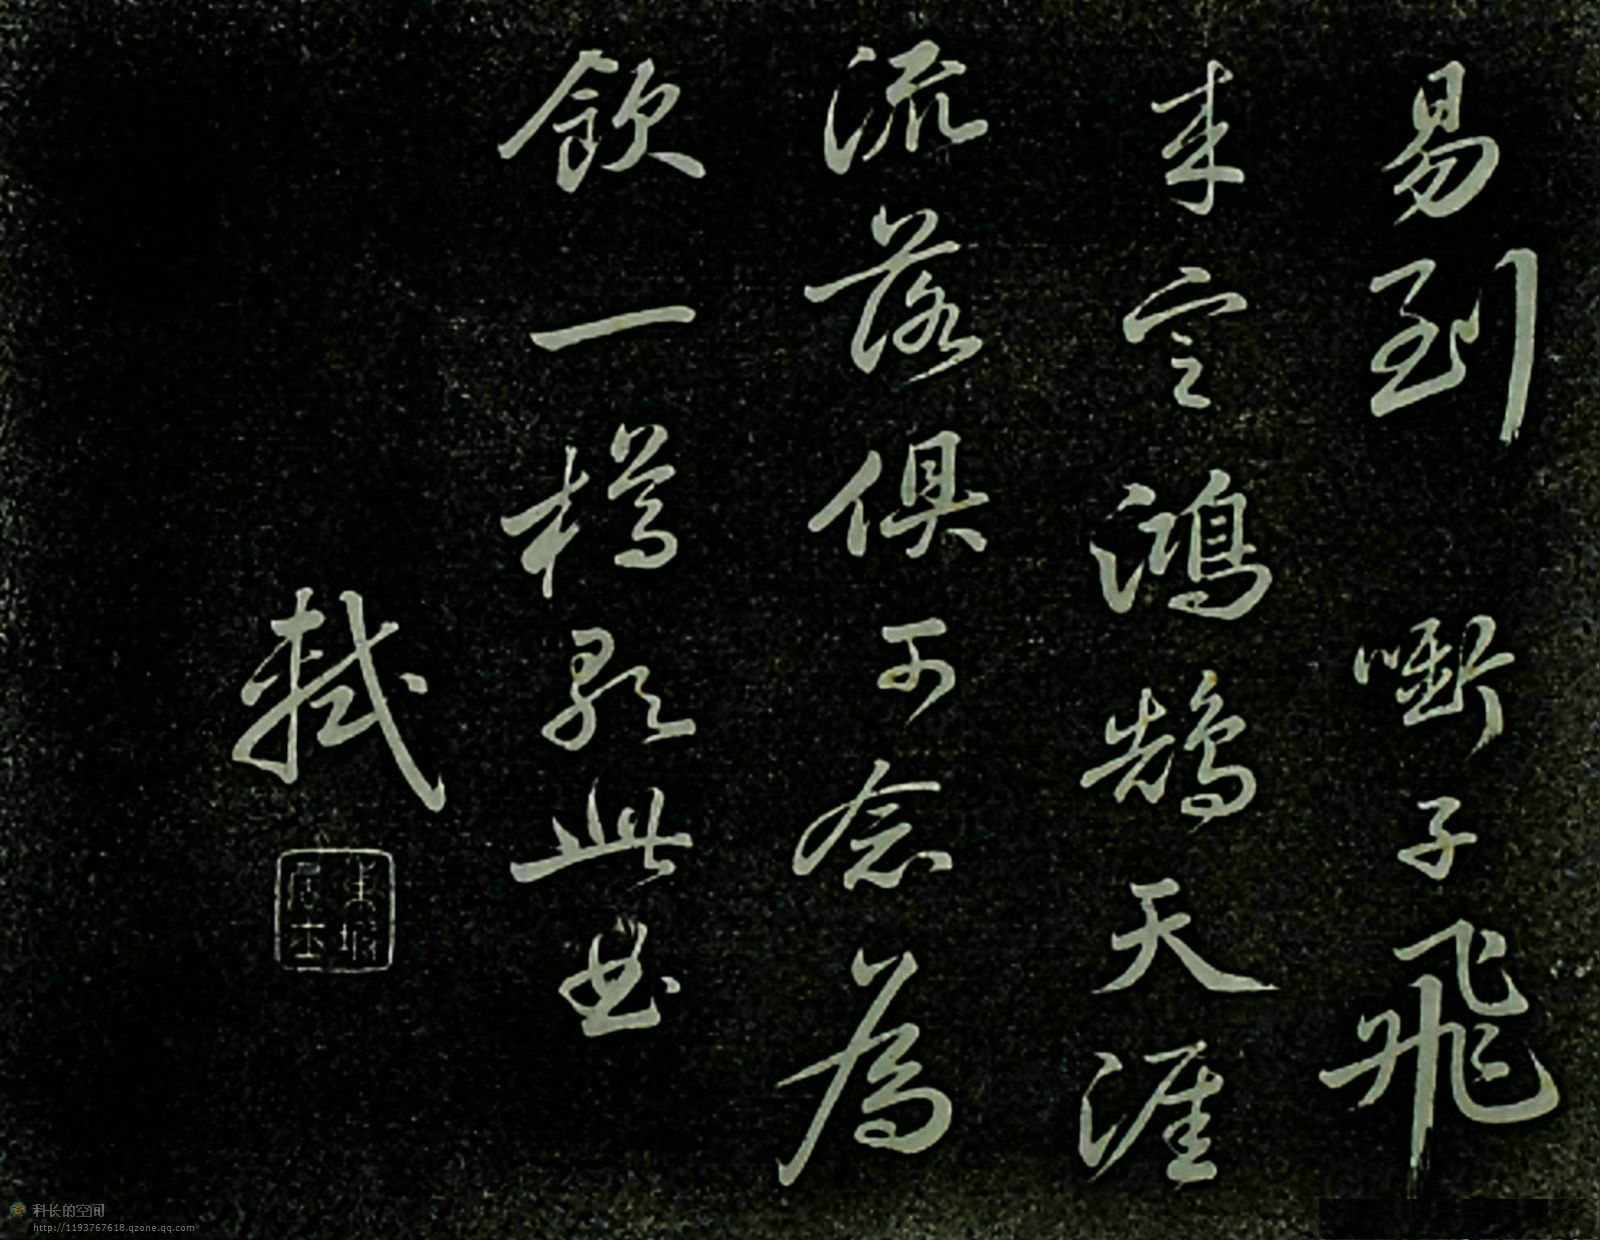 易到啣子飛
来定鴻鵠天涯
流落俱可念為
飲一樽歌此曲
軾
東坡居士
科长的空间
http://1193767618.qzone.qq.com